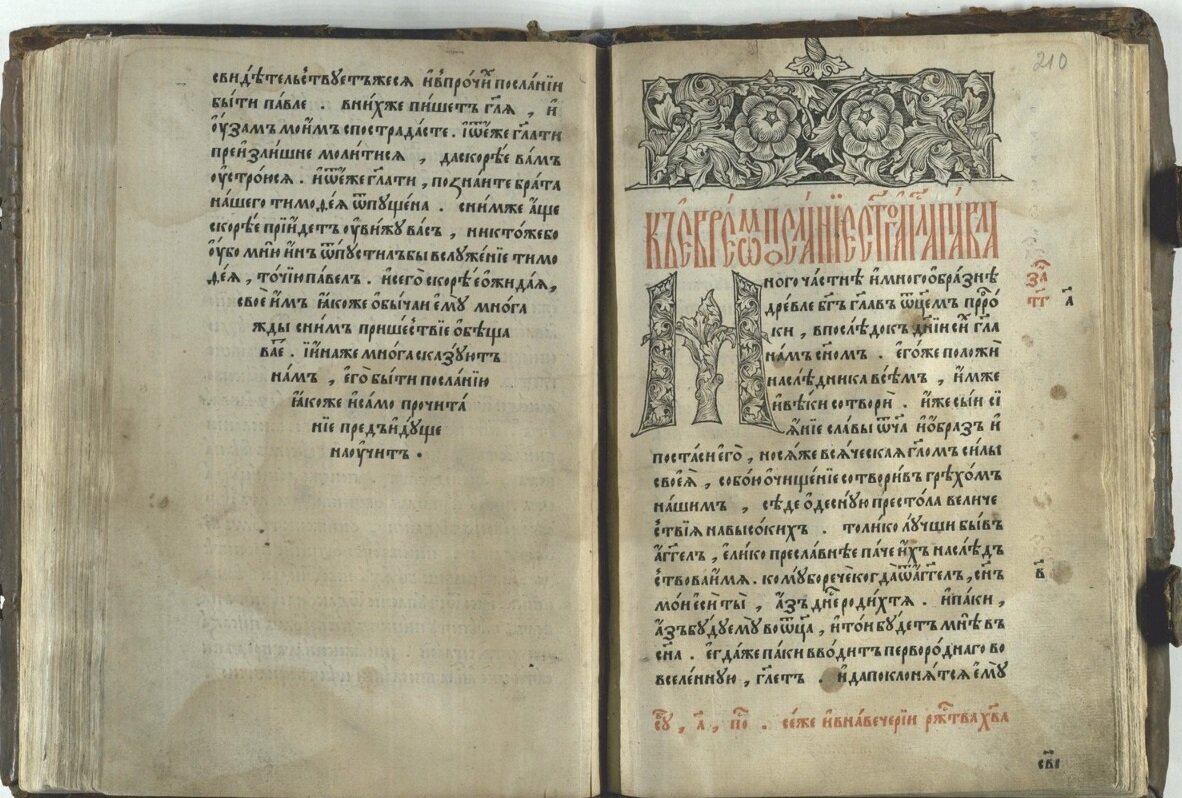 свидѣ́тельствуетъжеся и҆впро́чⷯи посла́нїи
бы́ти па́вле . вни́хже пи́шетъ гл҃я , и҆
оу҆́замъ мои҆́мъ спострада́сте . і҆ѿе́же гл҃ати
преи҆зли́шне моли́тися , даскорѣ́е ва́мъ
оу҆стро́юся . и҆ѿе́же гл҃ати , позна́ите бра́та
на́шего тимоѳе́я ѿпꙋще́на . сни́мже а҆́ще
скорѣ́е прїи҆́детъ оу҆ви́жꙋ ва́съ , никто́жебо
оу҆́бо мню̀ и҆́нъ ѿпꙋсти́лъбы вслꙋже́нїе тимо
ѳе́я , то́чїю па́велъ . и҆сего̀ скорѣ́е ѡ҆жида́я ,
свое́ и҆мъ ꙗ҆́коже ѻ҆бы́чаи е҆мꙋ̀ мно́га
жды сни́мъ прише́ствїе ѻ҆бѣща
ва́е . і҆и҆на́же мно́га ска́зꙋютъ
на́мъ , е҆го̀ бы́ти посла́нїю
ꙗ҆́коже и҆са́мо прочита́
нїе предъи҆дꙋще
наꙋ҆чи́тъ .
210
Къ е҆вре́ѡмъ посла́нїе ст҃го а҆пⷭ҇ла па́вла
Многоча́стнѣ и҆многоѻ҆бра́знѣ
дре́вле бг҃ъ гл҃авъ ѻ҆ц҃емъ прⷪ҇ро́
ки , впослѣ́докъ дні́и си́хъ гл҃а
на́мъ сн҃омъ . е҆го́же положѝ
наслѣ́дника всѣ́мъ , и҆́мже
и҆вѣ́ки сотворѝ . и҆́же сы́и сї
ѧ҆́нїе сла́вы ѻ҆́ч҃а и҆ѻ҆́бразъ и҆
поста́си е҆го̀ , нося́же вся́ческая гл҃омъ си́лы
своея̀ , собо́ю ѻ҆чище́нїе сотвори́въ грѣхо́мъ
на́шимъ , сѣ́де ѻ҆деснꙋ́ю престо́ла вели́че
ствїя навысо́кихъ . толи́ко лꙋ́чши бы́въ
а҆́гг҃елъ , е҆ли́ко пресла́внѣе па́че и҆́хъ наслѣ́д
ствова и҆́мя . комꙋ́боречѐ когда̀ ѿа҆́гг҃елъ , сн҃ъ
мо́и е҆сѝ ты̀ , а҆́зъ дне́сь роди́хтя . и҆па́ки ,
а҆́зъ бꙋ́дꙋ е҆мꙋ̀ во ѻ҆ц҃а , и҆то́и бꙋ́детъ мнѣ̀ въ
сн҃а . е҆гда́же па́ки вво́дитъ перворо́днаго во
вселе́ннꙋю , гл҃етъ . и҆да покло́нятся е҆мꙋ̀
за́
тг҃
а҃
в҃
сꙋ , а҃ , по . се́же и҆вна́вечерїи ржⷭ҇тва хв҃а